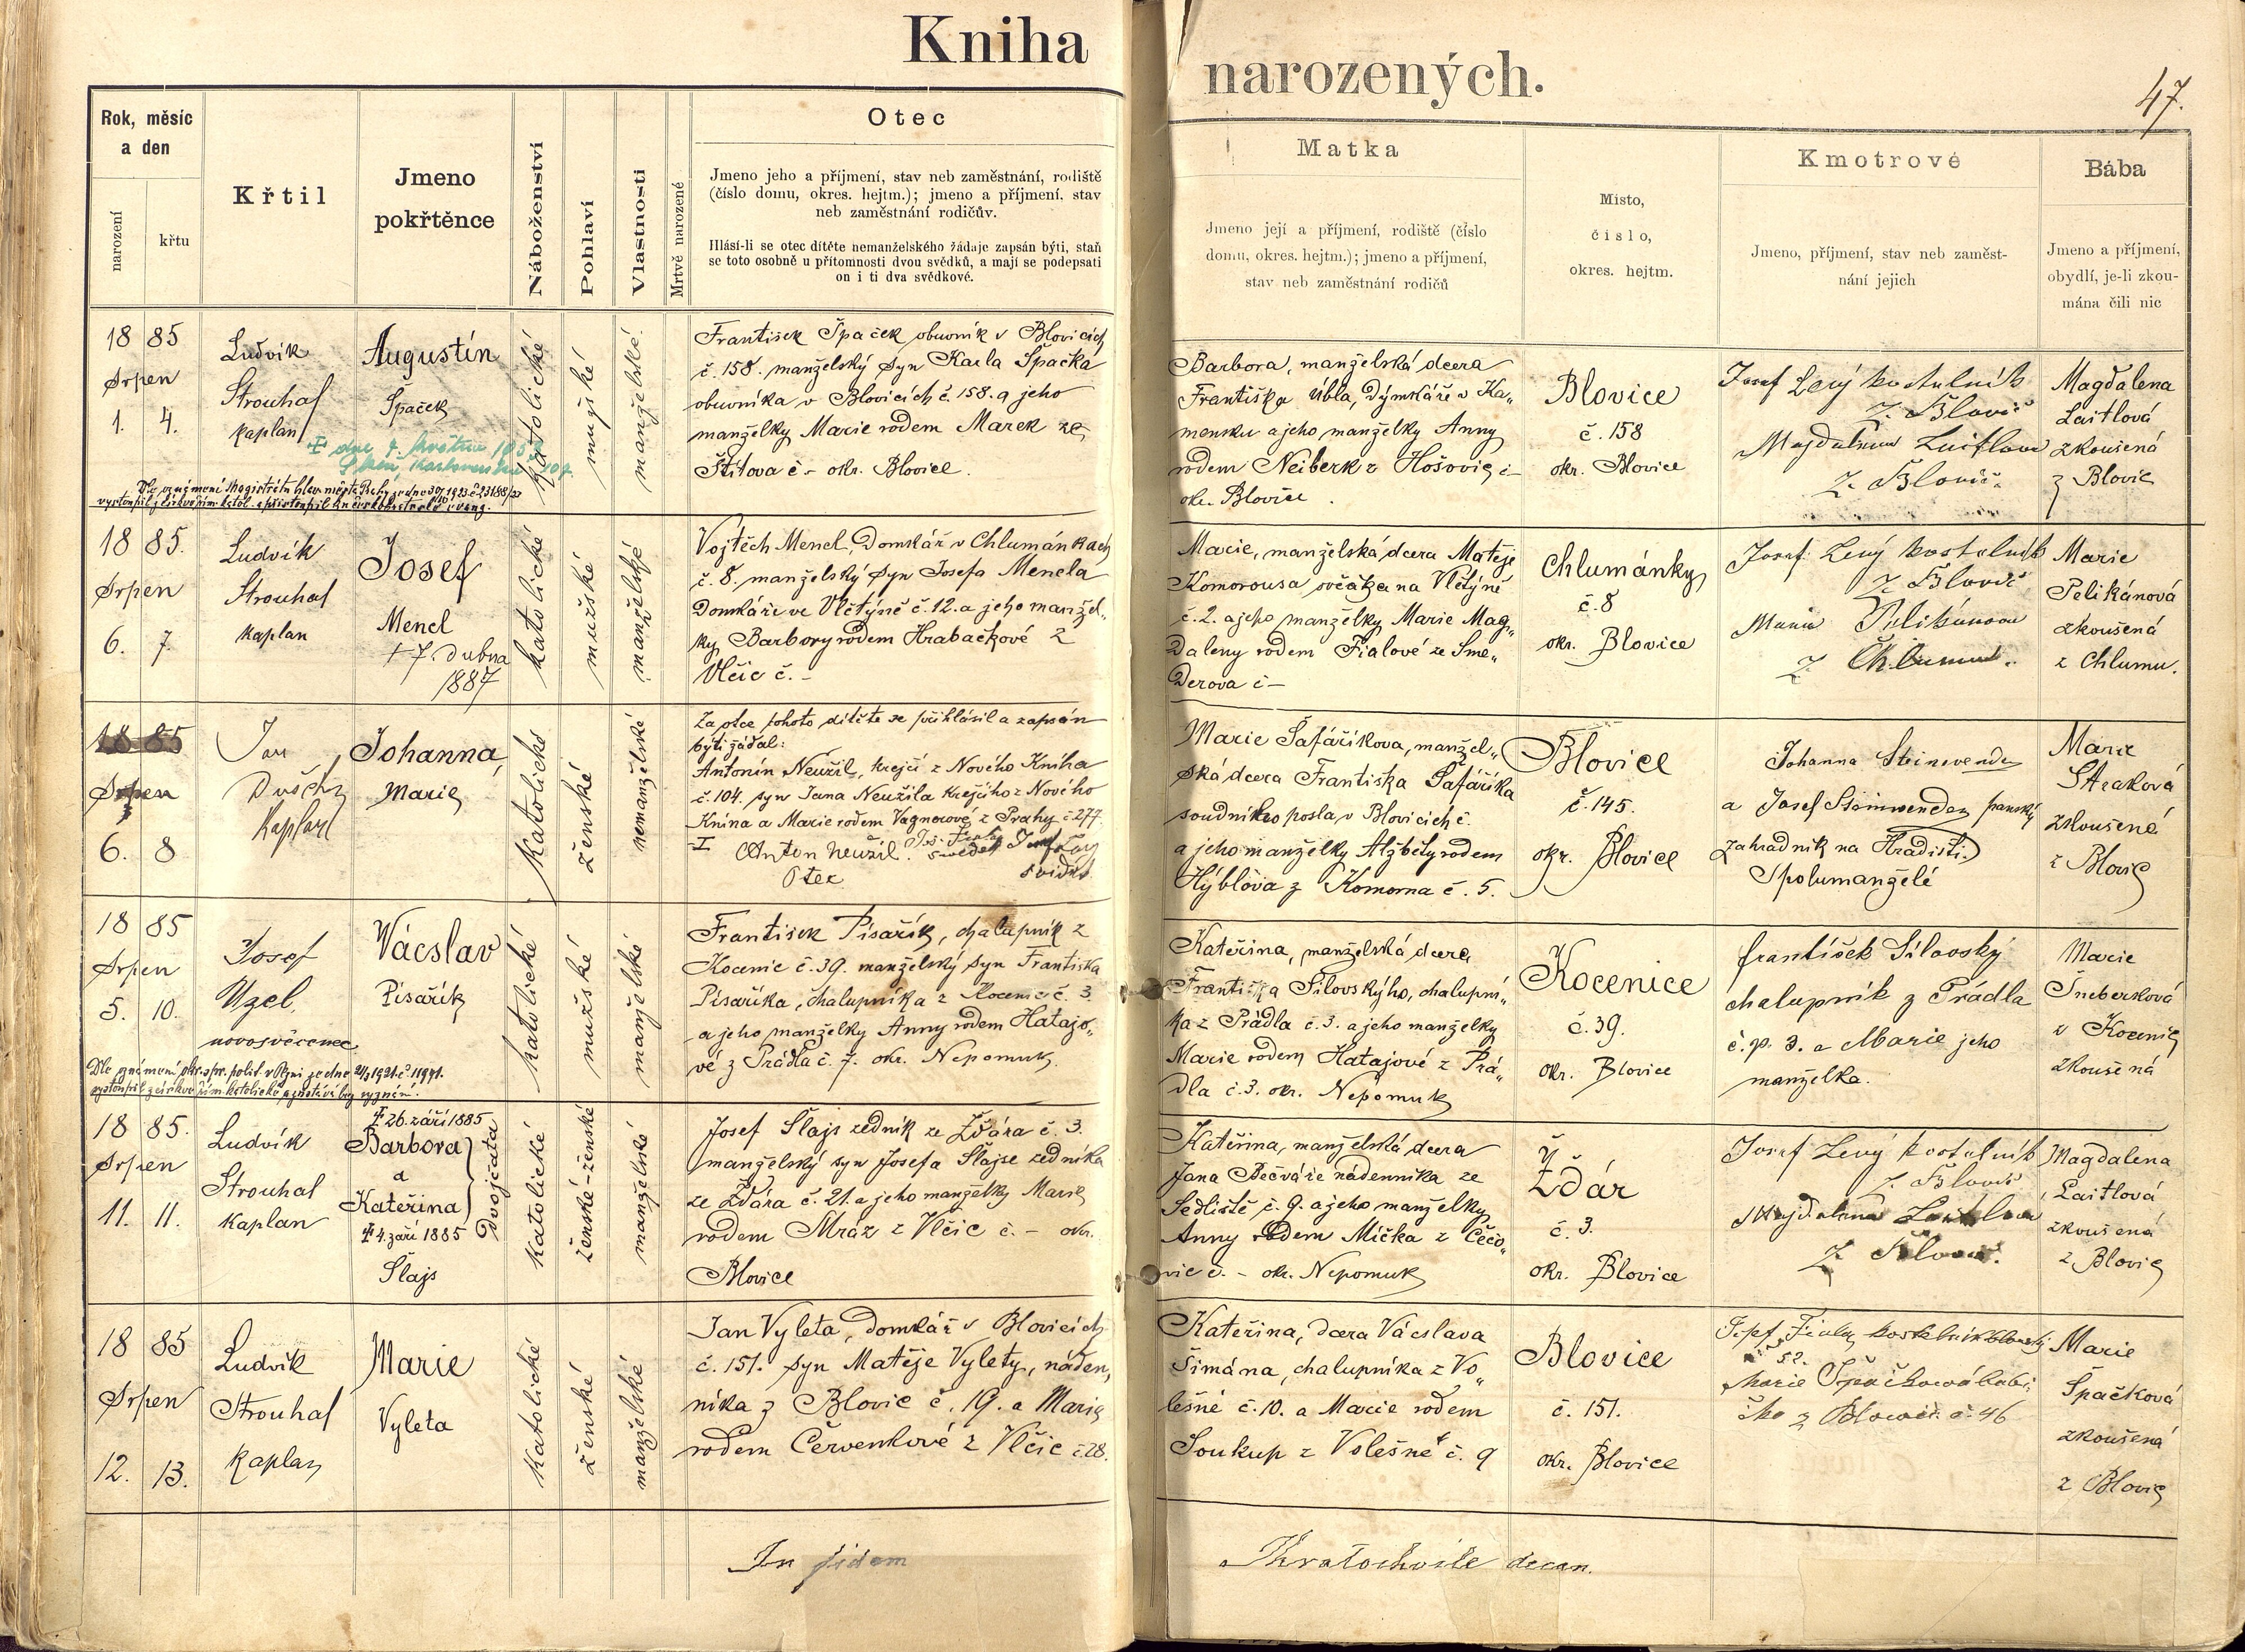 Kniha
narozených.
47.
Rok, měsíc
a den
narození
křtu
Křtil
Jmeno
pokřtěnce
Náboženství
Pohlaví
Vlastnosti
Mrtvě narozené
Otec
Jmeno jeho a příjmení, stav neb zaměstnání, rodiště
(číslo domu, okres. hejtm.); jmeno a příjmení, stav
neb zaměstnání rodičův.
Hlásí-li se otec dítěte nemanželského žádaje zapsán býti, staň
se toto osobně u přítomnosti dvou svědků, a mají se podepsati
on i ti dva svědkové.
Matka
Jmeno její a příjmení, rodiště (číslo
domu, okres. hejtm.); jmeno a příjmení,
stav neb zaměstnání rodičů
Místo,
číslo,
okres. hejtm.
Kmotrové
Jmeno, příjmení, stav neb zaměst-
nání jejich
Bába
Jmeno a příjmení,
obydlí, je-li zkou-
mána čili nic
18 85
Srpen
1. 4.
Ludvík
Strouhal
kaplan
Augustín
Špaček
katolické
mužské
manželské.
František Špaček obuvník v Blovicích
č. 158. manželský syn Karla Špačka
obuvníka v Blovicích č. 158. a jeho
manželky Marie rodem Marek ze
Štítova č – okr. Blovice.
Barbora, manželská dcera
Františka Úbla, Dýmkáře v Ka„
mensku a jeho manželky Anny
rodem Neiberk z Hošovic č –
okr. Blovice.
Blovice
č. 158
okr. Blovice
Josef Levý kostelník
z Blovic
Magdalena Laitlova
z Blovic
Magdalena
Laitlová
zkoušená
z Blovic
18 85.
Srpen
6. 7.
Ludvík
Strouhal
kaplan
Josef
Mencl
† 7. dubna
1887
katolické
mužské
manželské
Vojtěch Mencl, Domkář v Chlumánkách
č. 8. manželský syn Josefa Mencla
Domkáře ve Vlčtýně č. 12. a jeho manžel„
ky Barbory rodem Hrabačkové z
Vlčic č. –
Marie, manželská dcera Matěje
Komorousa ovčáka na Vlčtýně
č. 2. a jeho manželky Marie Mag„
daleny rodem Fialové ze Sme„
derova č –
Chlumánky
č. 8
okr. Blovice
Josef Levý kostelník
z Blovic
Marie Pelikánova
z Chlumu.
Marie
Pelikánová
zkoušená
z Chlumu.
18 85
Srpen
6. 8
Jan
Dušek
Kaplan
Johanna
Marie
katolické
ženské
nemanželské
Za otce tohoto dítěte se přihlásil a zapsán
býti žádal:
Antonín Neužil, krejčí z Nového Knína
č. 104. syn Jana Neužila krejčího z Nového
Knína a Marie rodem Vagnerové z Prahy č 277.
Anton Neužil.
Otec
svědek
svědek
Marie Šafaříkova, manžel„
ská dcera Františka Šafaříka
soudního posla, v Blovicích č.
a jeho manželky Alžběty rodem
Hýblova z Komorna č. 5.
Blovice
č. 145.
okr. Blovice
Johanna Steinwender
a Josef Steinwender panský
zahradník na Hradišti
Spolumanželé
Marie
Straková
zkoušená
z Blovic
18 85
Srpen
5. 10.
Josef
Uzel,
novosvěcenec
Vácslav
Písařík
katolické
mužské
manželské
František Písařík, chalupník z
Kocenic č. 39. manželský syn Františka
Písaříka, chalupníka z Kocenic č. 3.
a jeho manželky Anny rodem Hatajo„
vé z Prádla č. 7. okr. Nepomuk.
Kateřina, manželská dcera
Františka Silovského, chalupní„
ka z Prádla č. 3. a jeho manželky
Marie rodem Hatajové z Prá„
dla č. 3. okr. Nepomuk
Kocenice
č. 39.
okr. Blovice
František Silovský
chalupník z Prádla
č. p. 3. a Marie jeho
manželka.
Marie
Šneberková
z Kocenic
zkoušená
18 85.
Srpen
11. 11.
Ludvík
Strouhal
kaplan
† 26. září 1885
Barbora
a
Kateřina
† 4. září 1885
Dvojčata
Šlajs
katolické
ženské-ženské
manželské
Josef Šlajs zedník ze Žďára č 3.
manželský syn Josefa Šlajse zedníka
ze Žďára č. 21. a jeho manželky Marie
rodem Mráz z Vlčic č. – okr.
Blovice
Kateřina, manželská dcera
Jana Bečváře nádenníka ze
Sedliště č. 9. a jeho manželky
Anny rodem Míčka z Čečo„
vic č. – okr. Nepomuk
Žďár
č. 3.
okr. Blovice
Josef Levý kostelník
z Blovic
Magdalena Laitlova
z Blovic.
Magdalena
Laitlová
zkoušená
z Blovic
18 85
Srpen
12. 13.
Ludvík
Strouhal
kaplan
Marie
Vyleta
katolické
ženské
manželské
Jan Vyleta, domkář v Blovicích
č. 151. syn Matěje Vylety, náden„
níka z Blovic č. 19. a Marie
rodem Červenkové z Vlčic č. 28.
Kateřina, dcera Vácslava
Šimána, chalupníka z Vo„
lešné č. 10. a Marie rodem
Soukup z Volešné č. 9
Blovice
č. 151.
okr. Blovice
Josef Fiala kostelník
52.
Marie Špačková babi„
čka z Blovic č. 46
Marie
Špačková
zkoušená
z Blovic
In fidem
Kratochvíle decan.